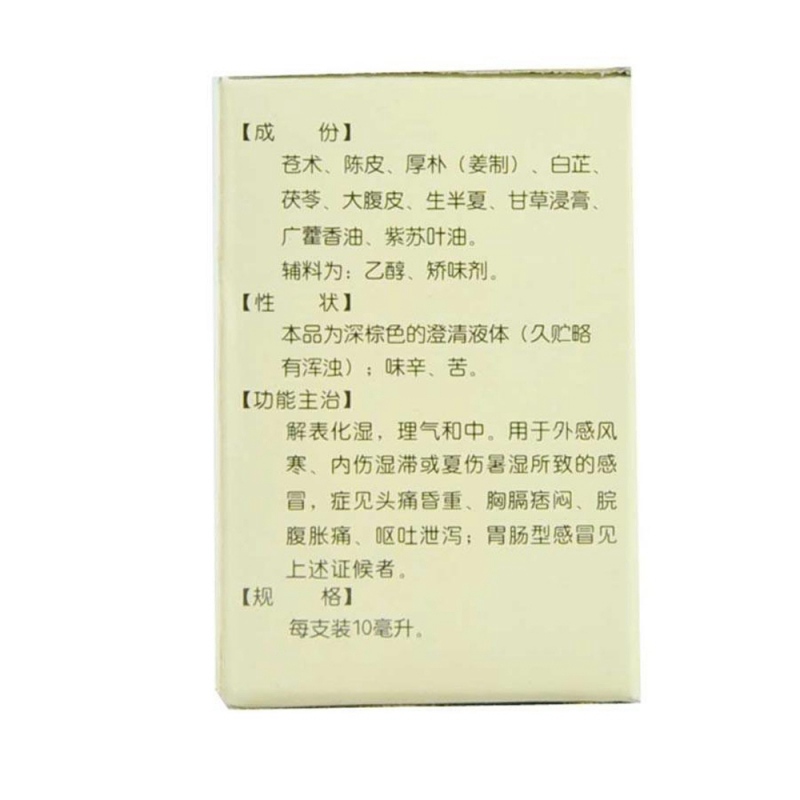 【成　份】
苍术、陈皮、厚朴（姜制）、白芷、
茯苓、大腹皮、生半夏、甘草浸膏、
广藿香油、紫苏叶油。
辅料为：乙醇、矫味剂。
【性　状】
本品为深棕色的澄清液体（久贮略
有浑浊）；味辛、苦。
【功能主治】
解表化湿，理气和中。用于外感风
寒、内伤湿滞或夏伤暑湿所致的感
冒，症见头痛昏重、胸膈痞闷、脘
腹胀痛、呕吐泄泻；胃肠型感冒见
上述证候者。
【规　格】
每支装10毫升。